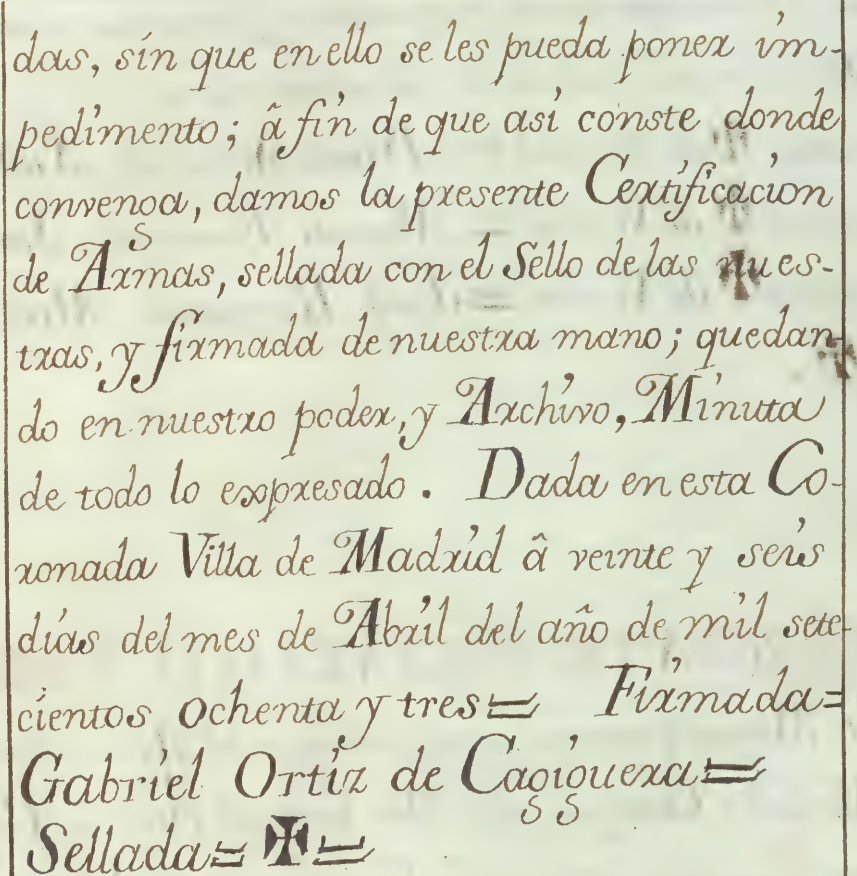 das, sin que en ello se les pueda poner im-
pedimento; â fin de que asi conste donde
convenga, damos la presente Certificacion
de Armas, sellada con el Sello de las nues-
tras, y firmada de nuestra mano; quedan-
do en nuestro poder, y Archivo, Minuta
de todo lo expresado. Dada en esta Co-
ronada Villa de Madrid â veinte y seis
dias del mes de Abril del año de mil sete-
cientos ochenta y tres= Firmada=
Gabriel Ortiz de Cagiguera=
Sellada= ✠=